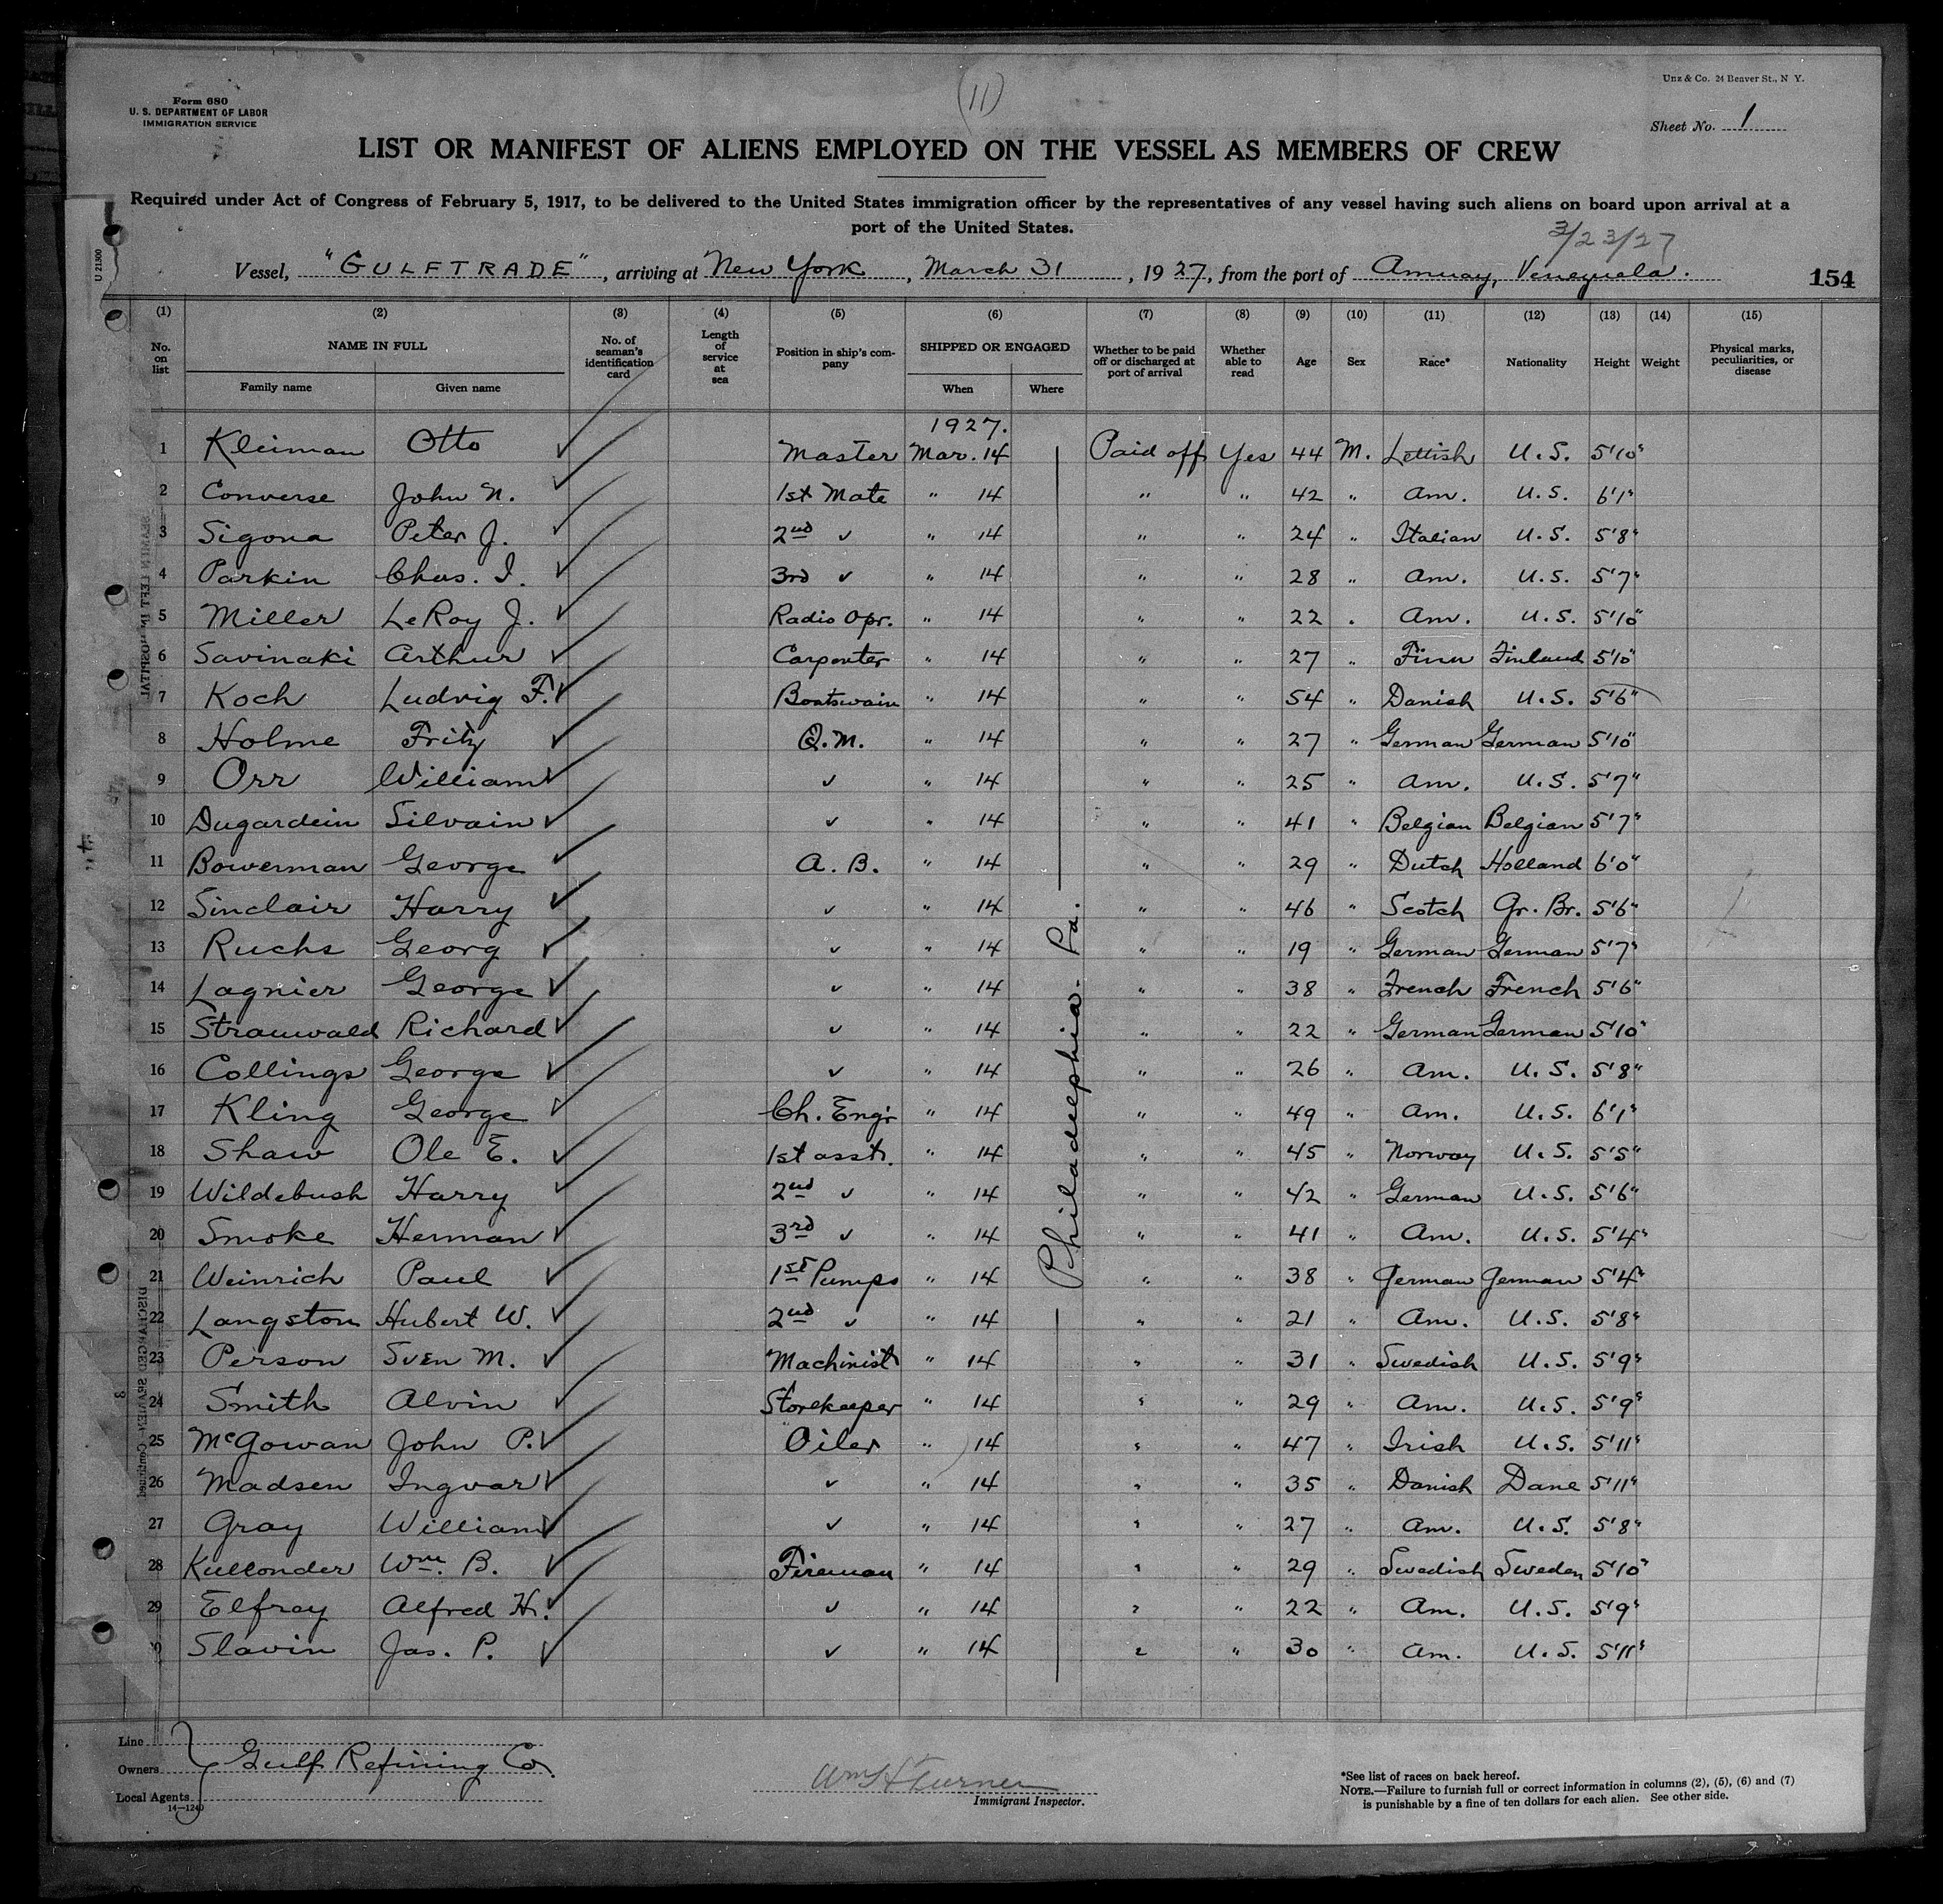 Form 680
U. S. DEPARTMENT OF LABOR
IMMIGRATION SERVICE
(11)
Unz & Co. 24 Beaver St., N Y.
Sheet No. 1
LIST OR MANIFEST OF ALIENS EMPLOYED ON THE VESSEL AS MEMBERS OF CREW
Required under Act of Congress of February 5, 1917, to be delivered to the United States immigration officer by the representatives of any vessel having such aliens on board upon arrival at a
port of the United States.
3/23/27
U 21300
Vessel, "GULFTRADE", arriving at New York, March 31, 1927, from the port of Amuay, Venezuela.
154
(1) (2) (3) (4) (5) (6) (7) (8) (9) (10) (11) (12) (13) (14) (15)
No. on list NAME IN FULL Family name Given name No. of seaman's identification card Length of service at sea Position in ship's company SHIPPED OR ENGAGED When Where Whether to be paid off or discharged at port of arrival Whether able to read Age Sex Race* Nationality Height Weight Physical marks, peculiarities, or disease
1927.
1 Kleiman Otto ✓ Master Mar. 14 Paid off Yes 44 M. Lettish U.S. 5'10"
2 Converse John N. ✓ 1st Mate " 14 " " 42 " Am. U.S. 6'1"
3 Sigona Peter J. ✓ 2nd ✓ " 14 " " 24 " Italian U.S. 5'8"
4 Parkin Chas. I. ✓ 3rd ✓ " 14 " " 28 " Am. U.S. 5'7"
5 Miller LeRoy J. ✓ Radio Opr. " 14 " " 22 " Am. U.S. 5'10"
6 Savinaki Arthur ✓ Carpenter " 14 " " 27 " Finn Finland 5'10"
7 Koch Ludvig F. ✓ Boatswain " 14 " " 54 " Danish U.S. 5'6"
8 Holme Fritz ✓ Q.M. " 14 " " 27 " German German 5'10"
9 Orr William ✓ ✓ " 14 " " 25 " Am. U.S. 5'7"
10 Dugardein Silvain ✓ ✓ " 14 " " 41 " Belgian Belgian 5'7"
11 Bowerman George ✓ A.B. " 14 " " 29 " Dutch Holland 6'0"
12 Sinclair Harry ✓ ✓ " 14 " " 46 " Scotch Gr. Br. 5'6"
13 Ruchs Georg ✓ ✓ " 14 " " 19 " German German 5'7"
14 Lagnier George ✓ ✓ " 14 " " 38 " French French 5'6"
15 Strauwald Richard ✓ ✓ " 14 " " 22 " German German 5'10"
16 Collings George ✓ ✓ " 14 " " 26 " Am. U.S. 5'8"
17 Kling George ✓ Ch. Engr " 14 " " 49 " Am. U.S. 6'1"
18 Shaw Ole E. ✓ 1st asst. " 14 " " 45 " Norway U.S. 5'5"
19 Wildebush Harry ✓ 2nd ✓ " 14 " " 42 " German U.S. 5'6"
20 Smoke Herman ✓ 3rd ✓ " 14 " " 41 " Am. U.S. 5'4"
21 Weinrich Paul ✓ 1st Pumps " 14 " " 38 " German German 5'4"
22 Langston Hubert W. ✓ 2nd ✓ " 14 " " 21 " Am. U.S. 5'8"
23 Person Sven M. ✓ Machinist " 14 " " 31 " Swedish U.S. 5'9"
24 Smith Alvin ✓ Storekeeper " 14 " " 29 " Am. U.S. 5'9"
25 McGowan John P. ✓ Oiler " 14 " " 47 " Irish U.S. 5'11"
26 Madsen Ingvar ✓ ✓ " 14 " " 35 " Danish Dane 5'11"
27 Gray William ✓ ✓ " 14 " " 27 " Am. U.S. 5'8"
28 Kullonder Wm. B. ✓ Fireman " 14 " " 29 " Swedish Sweden 5'10"
29 Elfray Alfred H. ✓ ✓ " 14 " " 22 " Am. U.S. 5'9"
30 Slavin Jas. P. ✓ ✓ " 14 " " 30 " Am. U.S. 5'11"
Philadelphia. Pa.
Line
Owners Gulf Refining Co.
Local Agents
14—1240
Wm H Turner
Immigrant Inspector.
*See list of races on back hereof.
NOTE.—Failure to furnish full or correct information in columns (2), (5), (6) and (7)
is punishable by a fine of ten dollars for each alien. See other side.